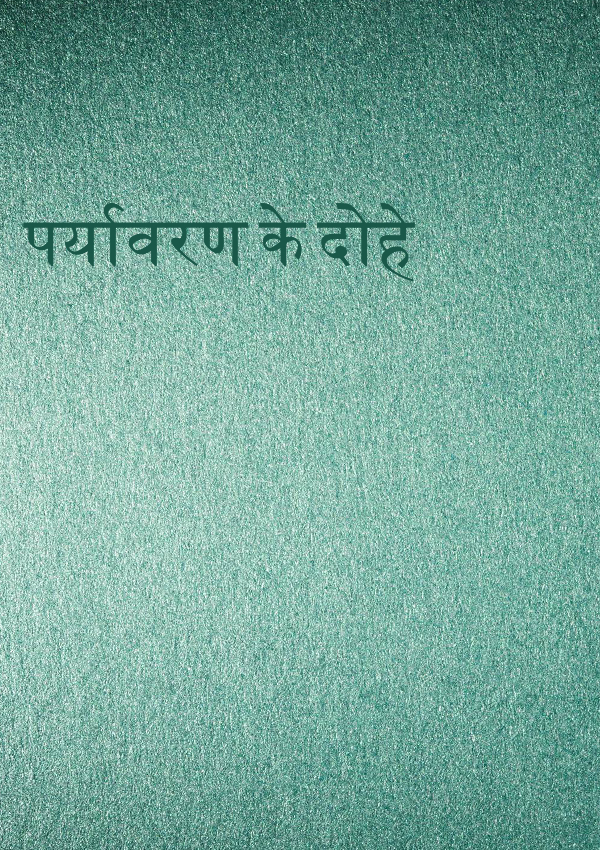 पर्यावरण के दोहे